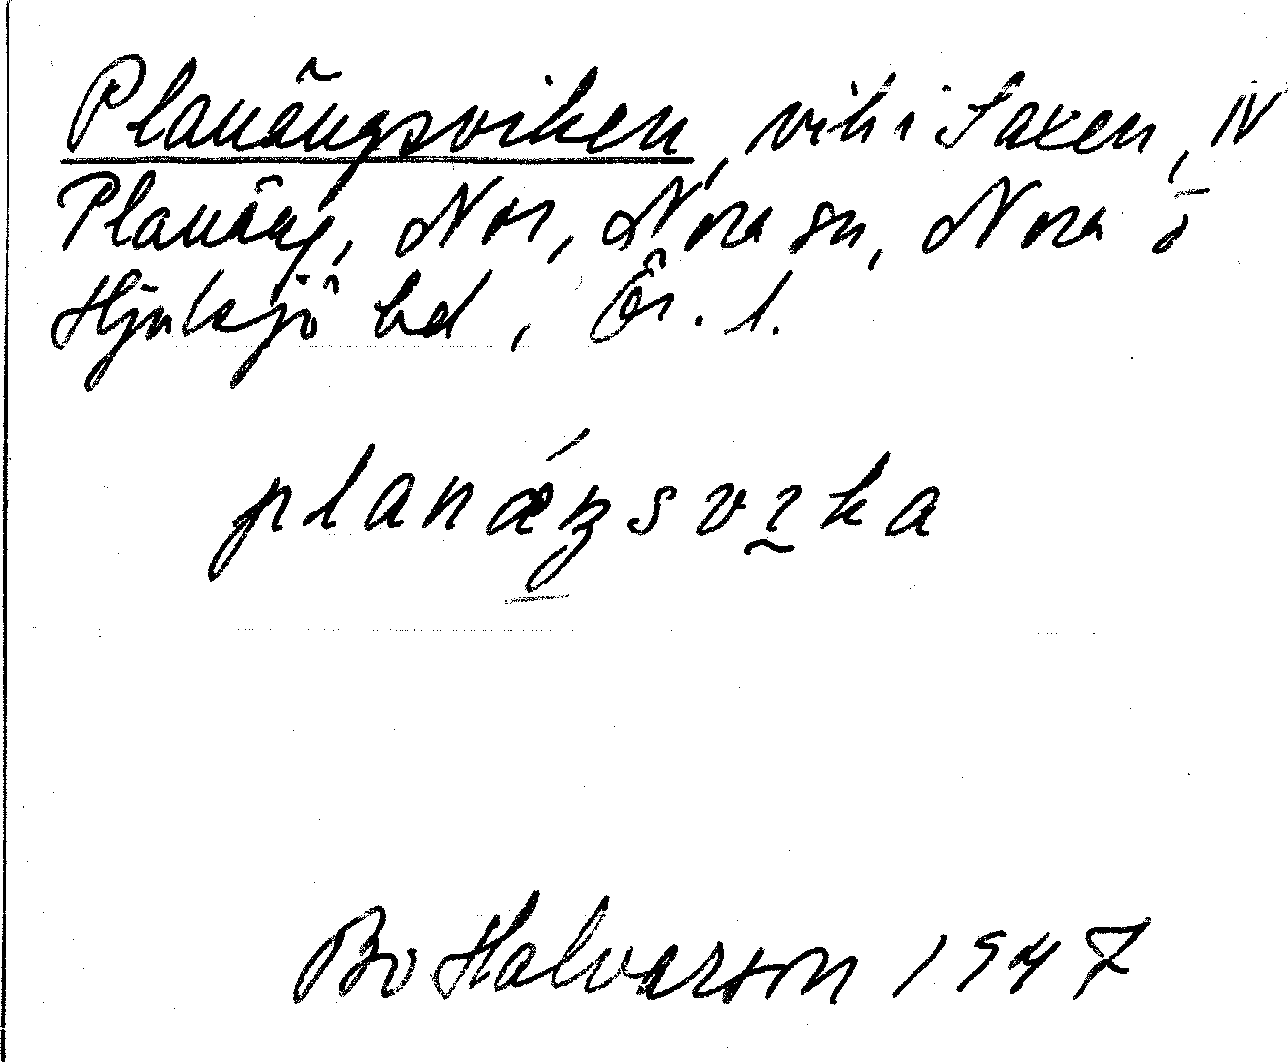 Planängsviken, vik i Saxen, N
Planäng, Nor, Nora sn, Nora o
Hjulsjö bd, Ör. l.
planǽŋsvika
Bo Halvarson 1947